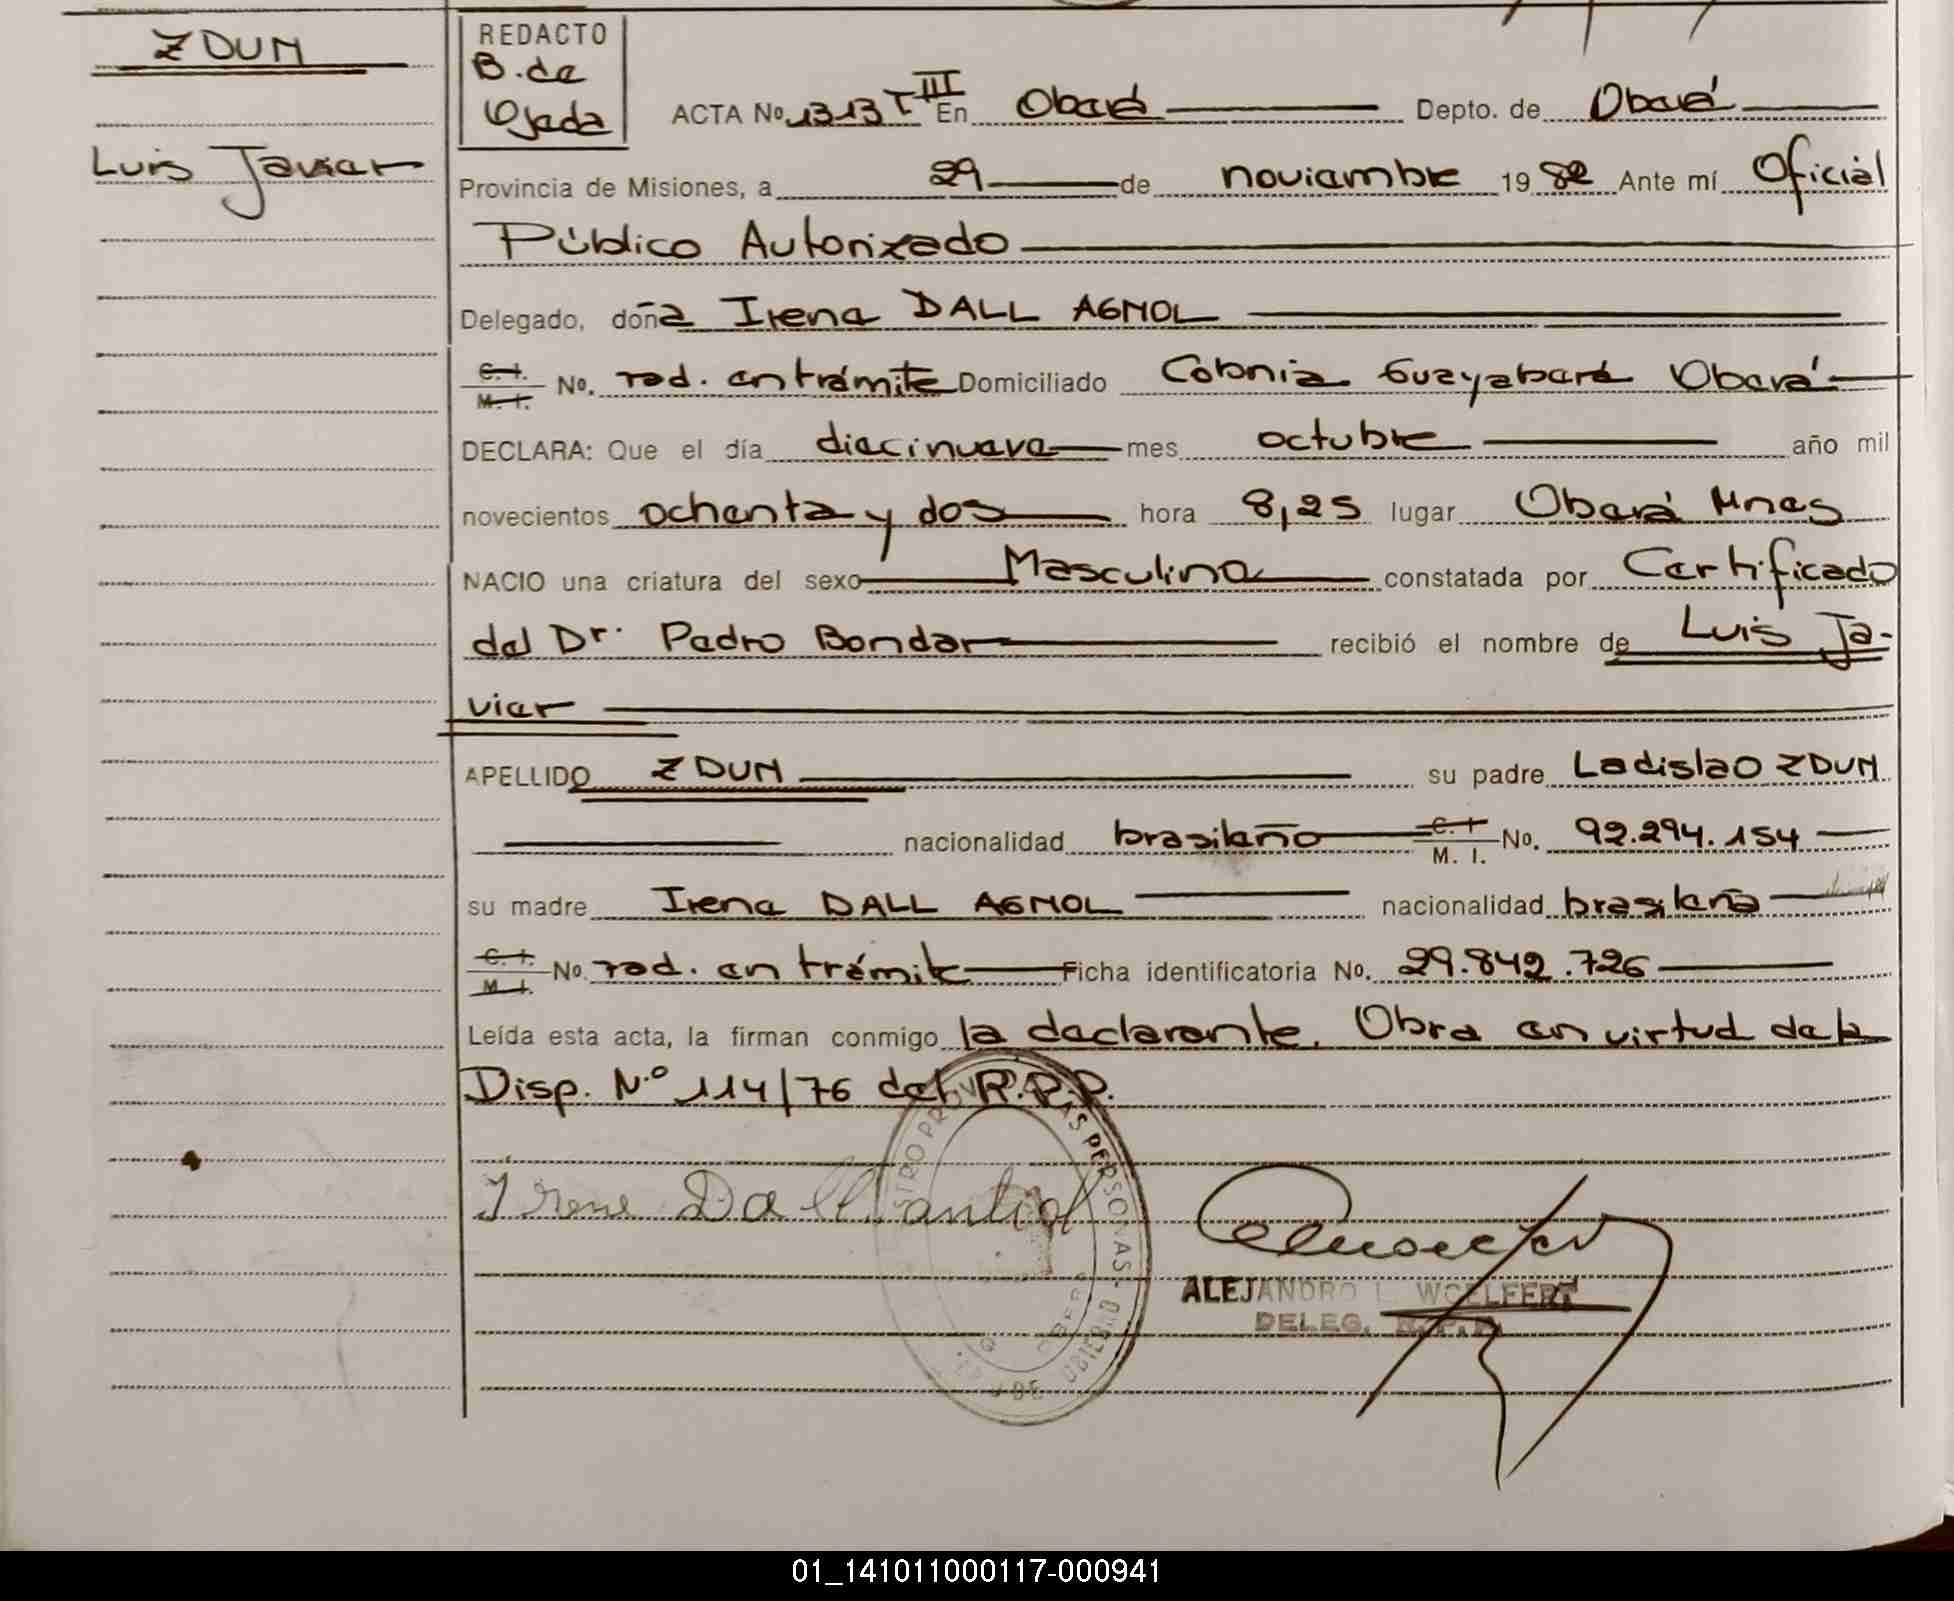 ZDUN
Luis Javier
REDACTO
B. de
Ojeda
ACTA No. 1313 T III En Oberá Depto. de Oberá
Provincia de Misiones, a 29 de noviembre 1982 Ante mí Oficial
Público Autorizado
Delegado, doña Irena DALL AGNOL
C. I.
M. I. No. rad. en trámite Domiciliado Colonia Guayabera Oberá
DECLARA: Que el día diecinueve mes octubre año mil
novecientos ochenta y dos hora 8,25 lugar Oberá Mnes
NACIO una criatura del sexo Masculino constatada por Certificado
del Dr. Pedro Bondar recibió el nombre de Luis Ja-
vier
APELLIDO ZDUN su padre Ladislao ZDUN
nacionalidad brasileño C. I.
M. I. No. 92.294.154
su madre Irena DALL AGNOL nacionalidad brasileña
C. I.
M. I. No. rad. en trámite Ficha identificatoria No. 29.842.726
Leída esta acta, la firman conmigo la declarante. Obra en virtud de la
Disp. N.º 114/76 del R.P.P.
Irene Dall
ALEJANDRO L. WOELFERT
DELEG. R.P.P.
01_141011000117-000941